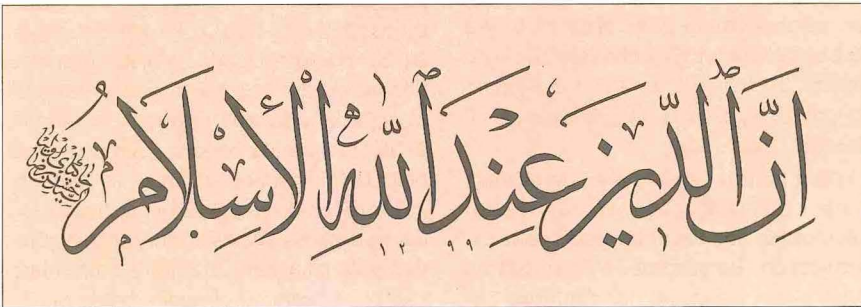 اِنَّ ٱلدِّينَ عِنْدَ ٱللّٰهِ الْأِسْلَامُ
١٣٩٩